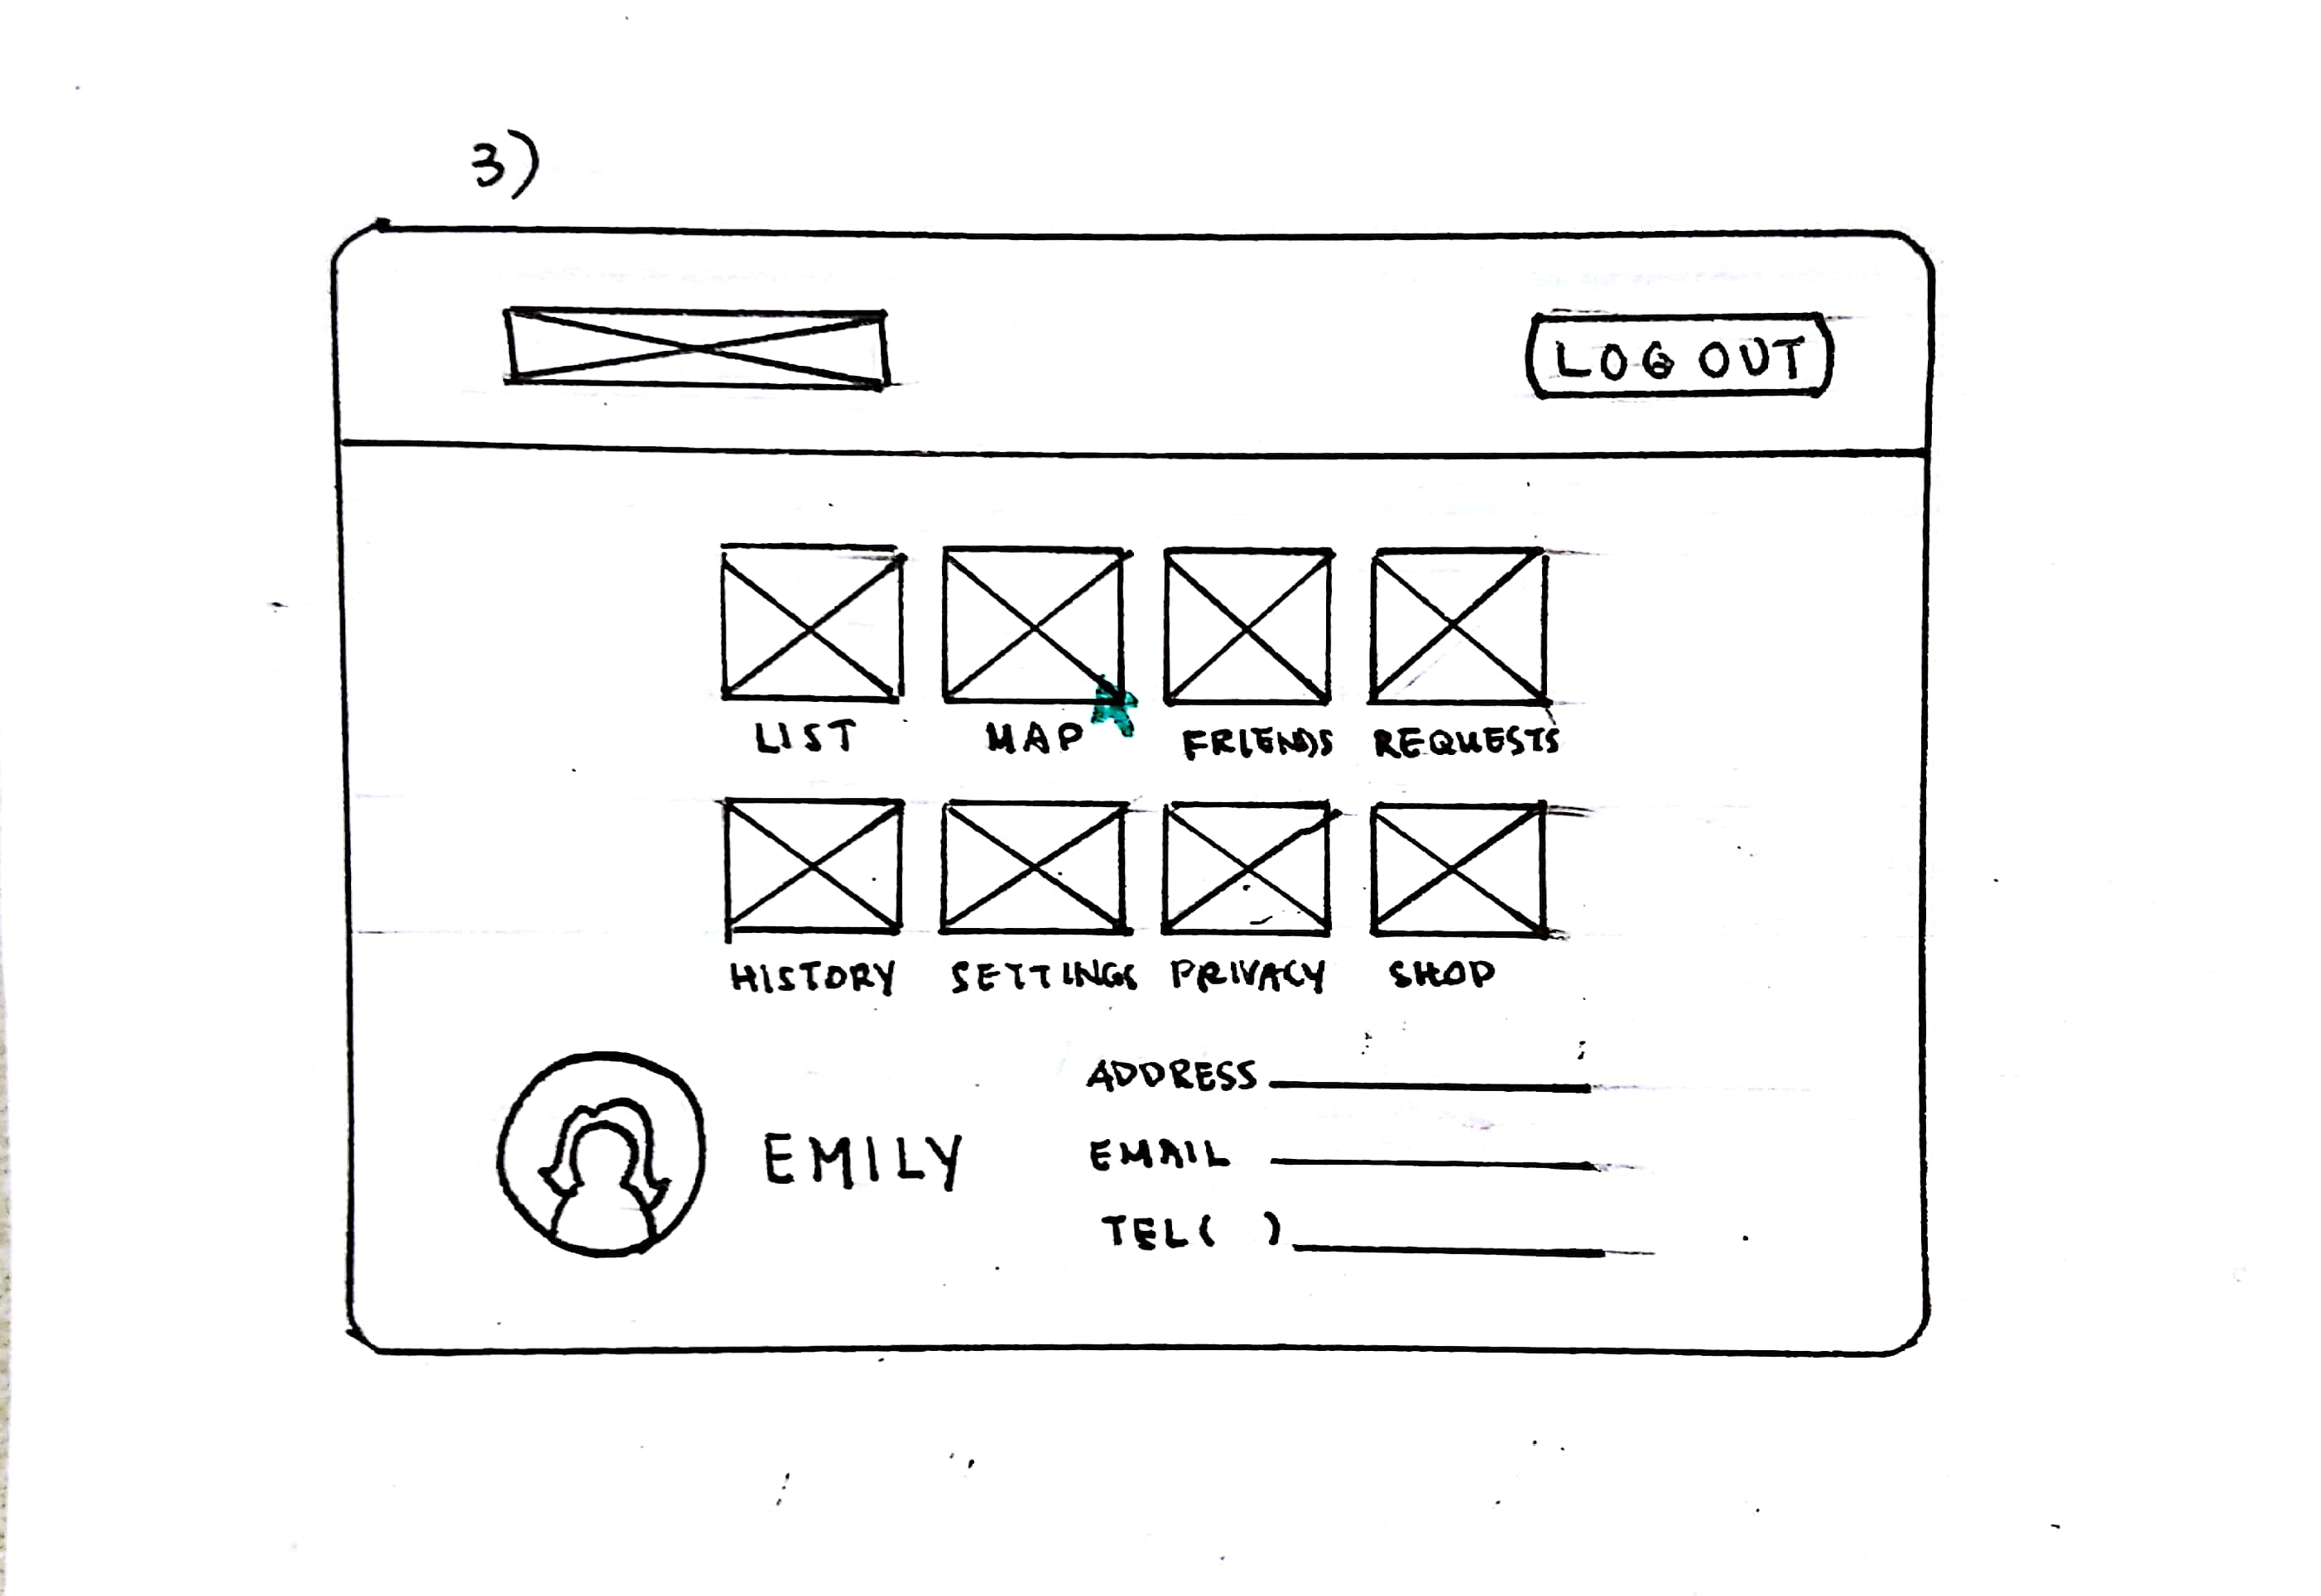 3)
LOG OUT
LIST MAP FRIENDS REQUESTS
HISTORY SETTINGS PRIVACY SHOP
ADDRESS
EMILY EMAIL
TEL( )